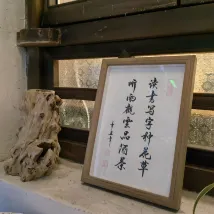 读书写字种花草
听雨观云品酒茶